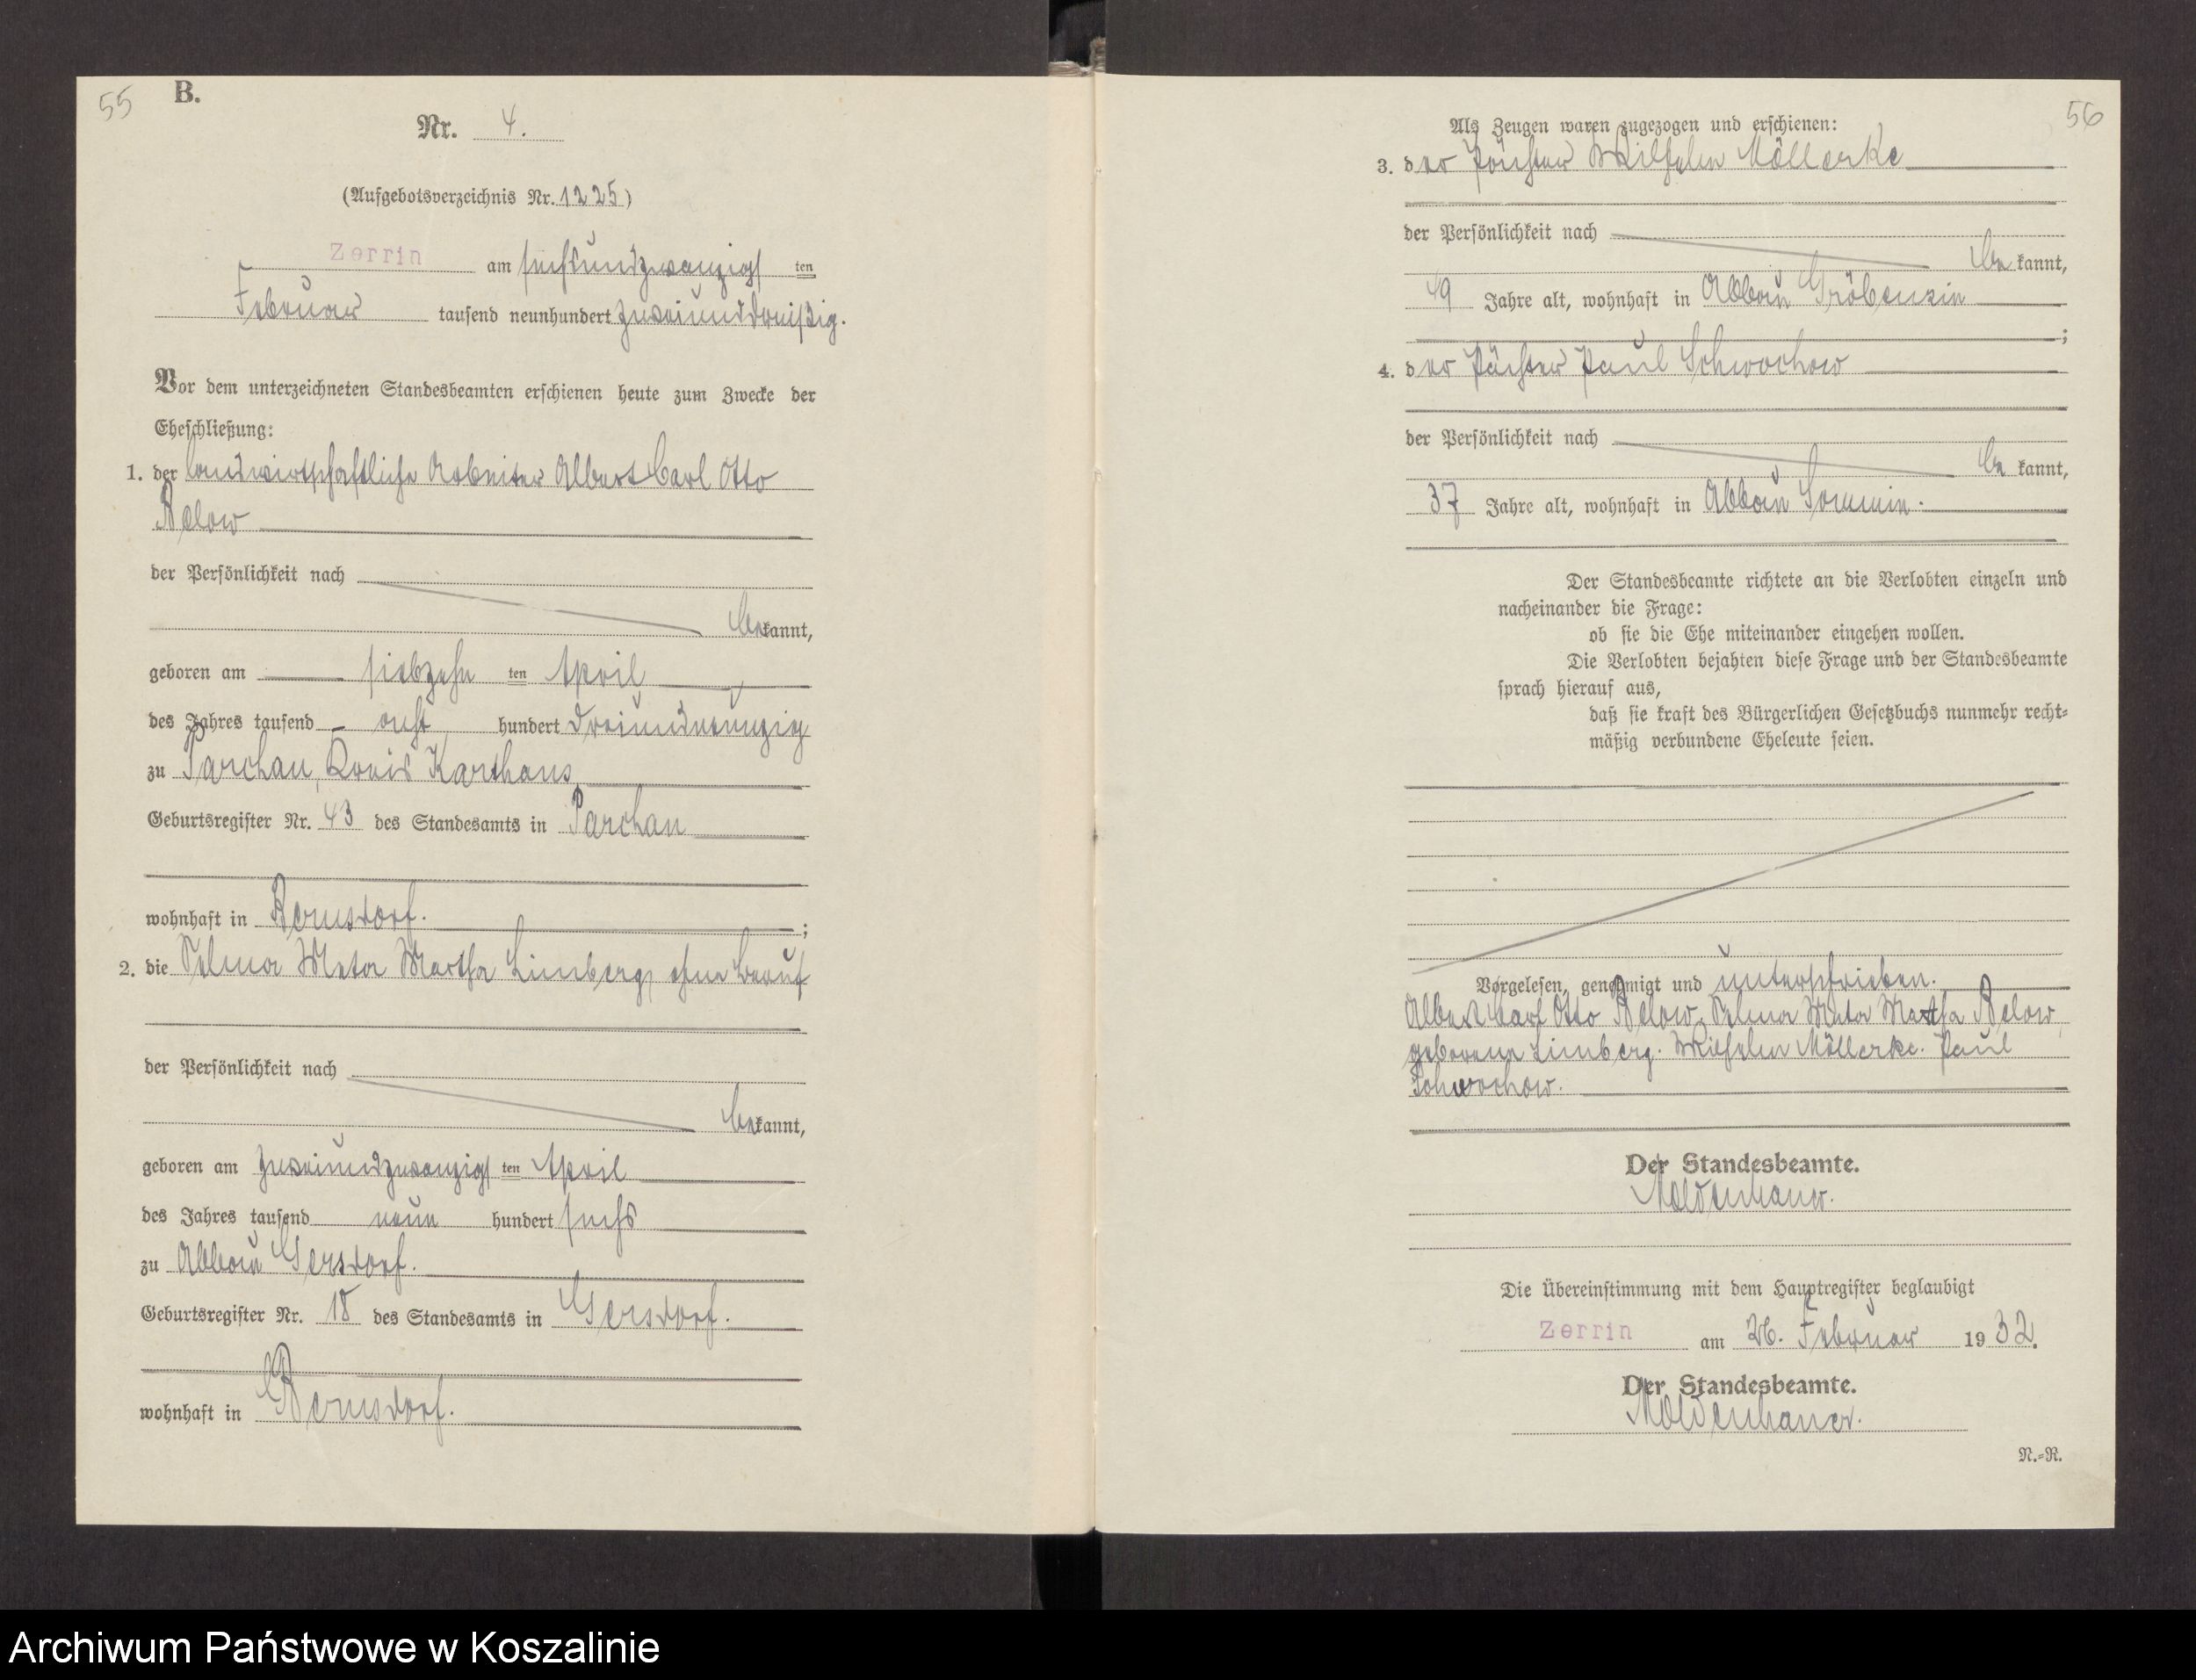 55
B.
Nr. 4.
(Aufgebotsverzeichnis Nr. 1225)
Zerrin am sechsundzwanzigsten
Februar tausend neunhundert zweiunddreißig.
Vor dem unterzeichneten Standesbeamten erschienen heute zum Zwecke der
Eheschließung:
1. der landwirtschaftliche Arbeiter Albert Carl Otto
Below
der Persönlichkeit nach
bekannt,
geboren am siebzehnten April
des Jahres tausend acht hundert dreiundneunzig
zu Parchau, Kreis Karthaus
Geburtsregister Nr. 43 des Standesamts in Parchau
wohnhaft in Bernsdorf.;
2. die Selma Meta Martha Limberg, ohne Beruf
der Persönlichkeit nach
bekannt,
geboren am zweiundzwanzigsten April
des Jahres tausend neun hundert sechs
zu Abbau Gersdorf.
Geburtsregister Nr. 18 des Standesamts in Gersdorf.
wohnhaft in Bernsdorf.
56
Als Zeugen waren zugezogen und erschienen:
3. der Wilhelm Möllerke
der Persönlichkeit nach
bekannt,
49 Jahre alt, wohnhaft in Abbau Gröbenzin
;
4. der Pächter Paul Schwochow
der Persönlichkeit nach
bekannt,
37 Jahre alt, wohnhaft in Abbau Sommin.
Der Standesbeamte richtete an die Verlobten einzeln und
nacheinander die Frage:
ob sie die Ehe miteinander eingehen wollen.
Die Verlobten bejahten diese Frage und der Standesbeamte
sprach hierauf aus,
daß sie kraft des Bürgerlichen Gesetzbuchs nunmehr recht-
mäßig verbundene Eheleute seien.
Vorgelesen, genehmigt und unterschrieben.
Albert Carl Otto Below. Selma Meta Martha Below
geborene Limberg. Wilhelm Möllerke. Paul
Schwochow.
Der Standesbeamte.
Moldenhauer.
Die Übereinstimmung mit dem Hauptregister beglaubigt
Zerrin am 26. Februar 1932.
Der Standesbeamte.
Moldenhauer.
N.-R.
Archiwum Państwowe w Koszalinie